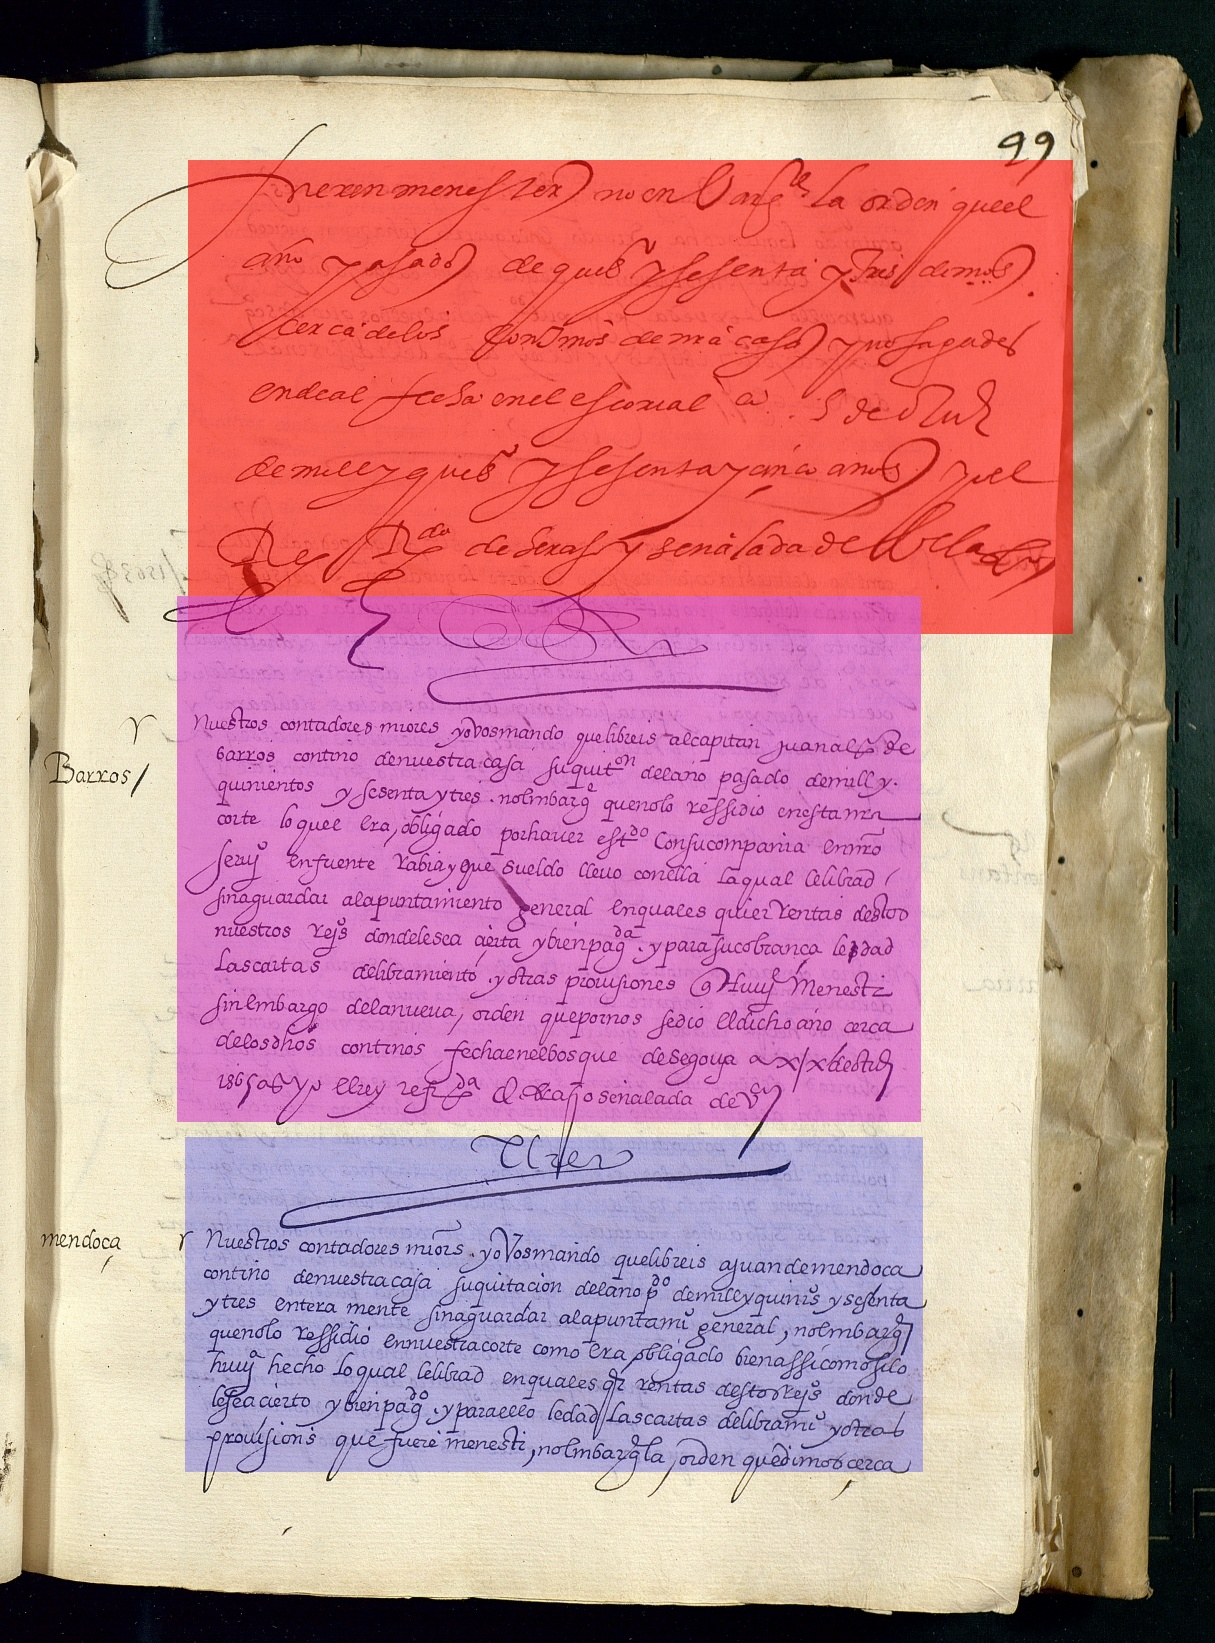 99
fueren menester no enbargte la orden que el
año pasado de quis y sesenta y tres dimos
cerca de los continos de nra casa y no fagades
ende al fecha en el escorial a de
de mill y quis y sesenta y cinco años yo el
Rey Rda de y señalada de
Barros
Nuestros contadores miores yo vos mando que libreis al capitan juan als de
barros contino de nuestra casa su quiton del año pasado de mill y
quinientos y sesenta y tres nolmbargte que no lo ressidio en esta nra
corte lo que el Era obligado por haver estdo Con su compania en nro
seruiº en fuente Rabia y que sueldo llevo con ella la qual le librad
sin aguardar al apuntamiento general En quales quier Rentas destos
nuestros Reyºs donde le sea cierta y bien pagda y para su cobrança le dad
Las cartas de libramiento y otras provisiones q Huuiere Menester
sin Embargo de la nueva orden que por nos se dio El dicho año cerca
de los dhos continos fecha en el bosque de segovia a xxix de
1565 as yo El rey refrda de señalada de
mendoça
Nuestros contadores miors yo Vos mando que libreis a juan de mendoca
contino de nuestra casa su quitacion del año pdo de mill y quinios y sesenta
y tres entera mente sin aguardar al apuntamio general, nolmbargte
que no lo ressidio en nuestra corte como Era obligado bien assi como si lo
huuiª hecho lo qual le librad en quales qr rentas destos Reyºs donde
le sea cierto y bien pagdo y para ello le dad Las cartas de libramio y otras
provisions que fuere menestr, nolmbargte la orden que dimos cerca